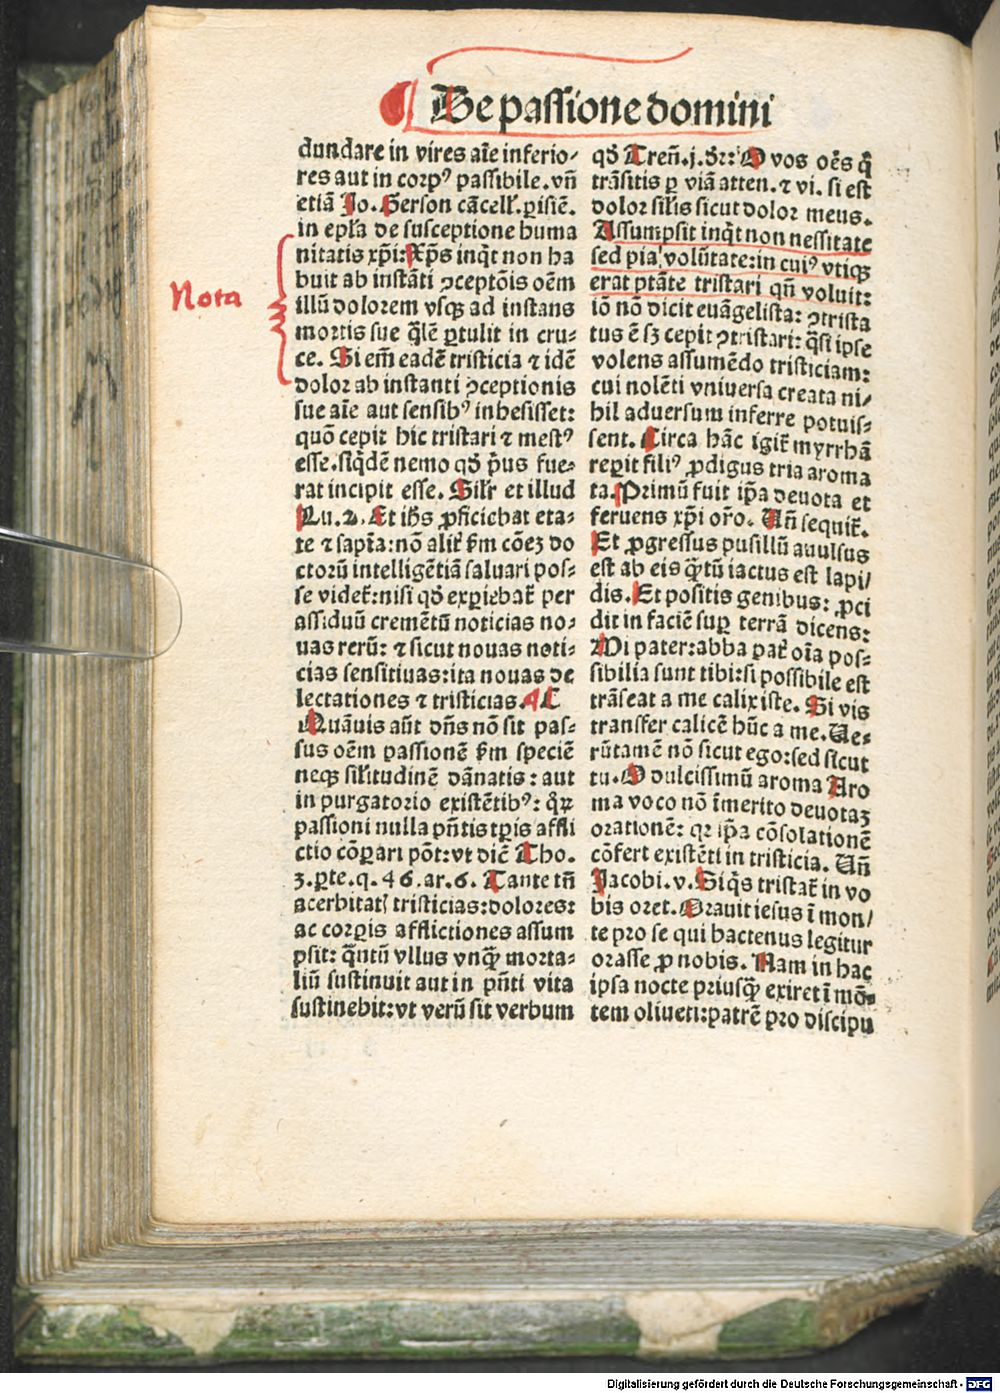 De passione domini
dundare in vires aīe inferio⸗
res aut in corpꝰ passibile. vñ
etiā Jo. Gerson cācell. pisiē.
in epl̄a de susceptione huma
nitatis xp̄i: Xp̄s inqt non ha
buit ab instāti ꝯceptōis oēm
illū dolorem vsqꝫ ad instans
mortis sue q̄lē ꝑtulit in cru⸗
ce. Si em̄ eadē tristicia ⁊ idē
dolor ab instanti ꝯceptionis
sue aīe aut sensibꝰ inhesisset:
quō cepit hic tristari ⁊ mestꝰ
esse. siq̄dē nemo qđ p̄us fue⸗
rat incipit esse. Silr̄ et illud
Lu. 2. Et ihs̄ ꝓficiebat eta⸗
te ⁊ sapīa: nō alit̄ ẜm cōeꝫ do
ctorū intelligētiā saluari pos⸗
se videt̄: nisi qđ exꝑiebat̄ per
assiduū cremētū noticias no⸗
uas rerū: ⁊ sicut nouas noti⸗
cias sensitiuas: ita nouas de
lectationes ⁊ tristicias. ¶ C
Quāuis aūt dn̄s nō sit pas⸗
sus oēm passionē ẜm speciē
neqꝫ sil̄itudinē dānatis: aut
in purgatorio existētibꝰ: q̄ꝝ
passioni nulla pn̄tis tꝑis affli
ctio cōꝑari pōt: vt dic̄ Tho.
3. ꝑte. q. 46. ar. 6. Tante tn̄
acerbitatꝭ tristicias: dolores:
ac corꝑis afflictiones assum
psit: q̄ntū vllus vnq̄ꝫ morta⸗
liū sustinuit aut in pn̄ti vita
sustinebit: vt verū sit verbum
qđ Tren̄. j. dr̄: O vos oēs q̄
trāsitis ꝑ viā atten. ⁊ vi. si est
dolor sil̄is sicut dolor meus.
Assumpsit inqt non nessitate
sed pia volūtate: in cuiꝰ vtiqꝫ
erat ptāte tristari qn̄ voluit:
iō nō dicit euāgelista: ꝯtrista
tus ē sꝫ cepit ꝯtristari: q̄si ipse
volens assumēdo tristiciam:
cui nolēti vniuersa creata ni⸗
hil aduersum inferre potuis⸗
sent. Circa hāc igit̄ myrrhā
reꝑit filiꝰ ꝓdigus tria aroma
ta. Primū fuit ip̄a deuota et
feruens xp̄i or̄o. Vn̄ sequit̄.
Et ꝓgressus pusillū auulsus
est ab eis q̄ꝫtū iactus est lapi⸗
dis. Et positis genibus: ꝓci
dit in faciē suꝑ terrā dicens:
Mi pater: abba pat̄ oīa pos⸗
sibilia sunt tibi: si possibile est
trāseat a me calix iste. Si vis
transfer calicē hūc a me. Ue⸗
rūtamē nō sicut ego: sed sicut
tu. O dulcissimū aroma Aro
ma voco nō īmerito deuotaꝫ
orationē: qꝛ ip̄a cōsolationē
cōfert existēti in tristicia. Vn̄
Jacobi. v. Siq̄s tristat̄ in vo
bis oret. Orauit iesus ī mon⸗
te pro se qui hactenus legitur
orasse ꝓ nobis. Nam in hac
ipsa nocte priusq̄ꝫ exiret ī mō⸗
tem oliueti: patrē pro discipu
Nota
Digitalisierung gefördert durch die Deutsche Forschungsgemeinschaft - DFG